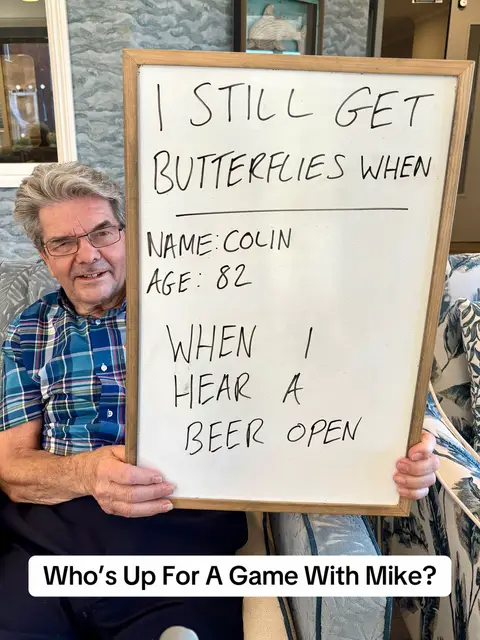 I STILL GET
BUTTERFLIES WHEN
NAME: COLIN
AGE: 82
WHEN I
HEAR A
BEER OPEN
Who's Up For A Game With Mike?